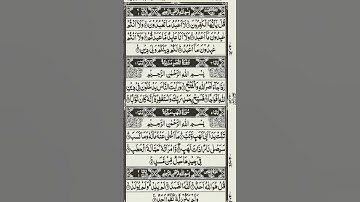 قُلْ يٰۤاَيُّهَا الْكٰفِرُوْنَ لَاۤ اَعْبُدُ مَا تَعْبُدُوْنَ وَلَاۤ اَنْتُمْ
عٰبِدُوْنَ مَاۤ اَعْبُدُ وَلَاۤ اَنَا عَابِدٌ مَّا عَبَدْتُّمْ وَلَاۤ اَنْتُمْ
عٰبِدُوْنَ مَاۤ اَعْبُدُ لَكُمْ دِيْنُكُمْ وَلِيَ دِيْنِ
بِسْمِ اللّٰهِ الرَّحْمٰنِ الرَّحِيْمِ
اِذَا جَآءَ نَصْرُ اللّٰهِ وَالْفَتْحُ وَرَاَيْتَ النَّاسَ يَدْخُلُوْنَ فِيْ دِيْنِ
اللّٰهِ اَفْوَاجًا فَسَبِّحْ بِحَمْدِ رَبِّكَ وَاسْتَغْفِرْهُ اِنَّهٗ كَانَ تَوَّابًا
بِسْمِ اللّٰهِ الرَّحْمٰنِ الرَّحِيْمِ
تَبَّتْ يَدَاۤ اَبِيْ لَهَبٍ وَّتَبَّ مَاۤ اَغْنٰى عَنْهُ مَالُهٗ وَمَا كَسَبَ
سَيَصْلٰى نَارًا ذَاتَ لَهَبٍ وَّامْرَاَتُهٗ حَمَّالَةَ الْحَطَبِ
فِيْ جِيْدِهَا حَبْلٌ مِّنْ مَّسَدٍ
قُلْ هُوَ اللّٰهُ اَحَدٌ اَللّٰهُ الصَّمَدُ لَمْ يَلِدْ وَلَمْ يُوْلَدْ
وَلَمْ يَكُنْ لَّهٗ كُفُوًا اَحَدٌ